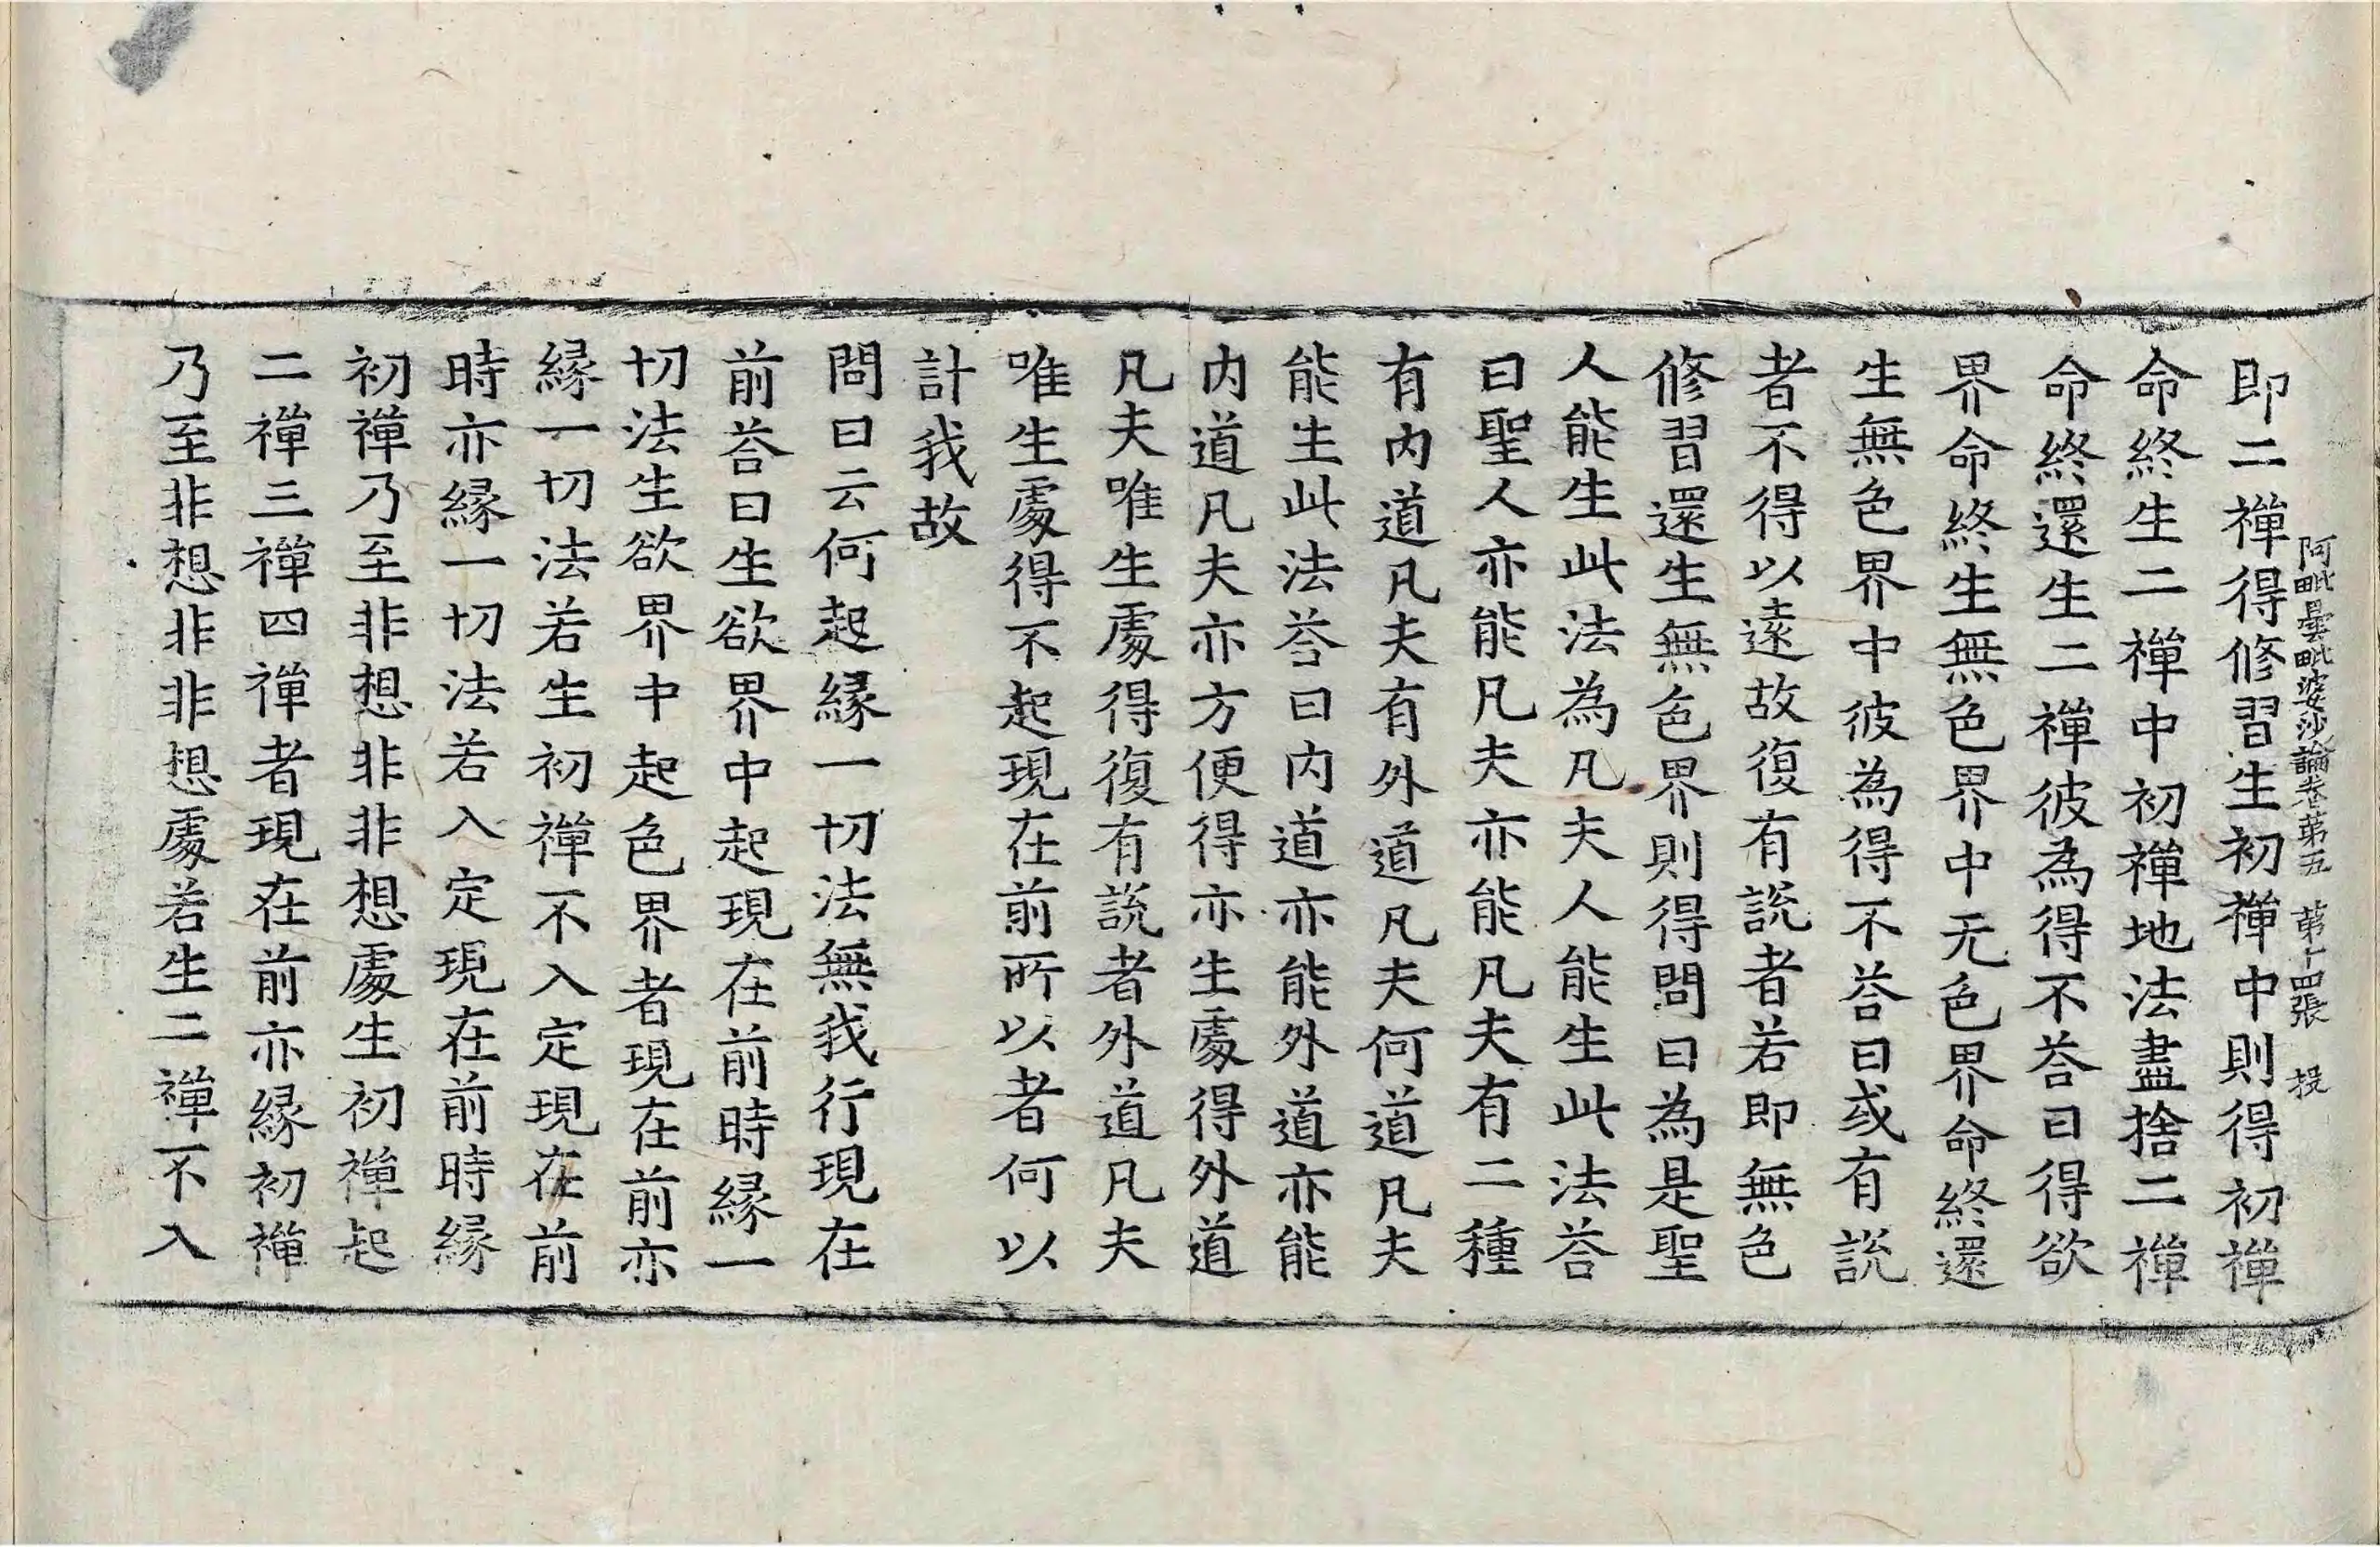 阿毗曇毗婆沙論卷第五　第十四張　投
即二禪得修習生初禪中則得初禪
命終生二禪中初禪地法盡捨二禪
命終還生二禪彼為得不荅曰得欲
界命終生無色界中无色界命終還
生無色界中彼為得不荅曰或有說
者不得以遠故復有說者若即無色
修習還生無色界則得問曰為是聖
人能生此法為凡夫人能生此法荅
曰聖人亦能凡夫亦能凡夫有二種
有內道凡夫有外道凡夫何道凡夫
能生此法荅曰內道亦能外道亦能
內道凡夫亦方便得亦生處得外道
凡夫唯生處得復有說者外道凡夫
唯生處得不起現在前所以者何以
計我故
問曰云何起緣一切法無我行現在
前荅曰生欲界中起現在前時緣一
切法生欲界中起色界者現在前亦
緣一切法若生初禪不入定現在前
時亦緣一切法若入定現在前時緣
初禪乃至非想非非想處生初禪起
二禪三禪四禪者現在前亦緣初禪
乃至非想非非想處若生二禪不入